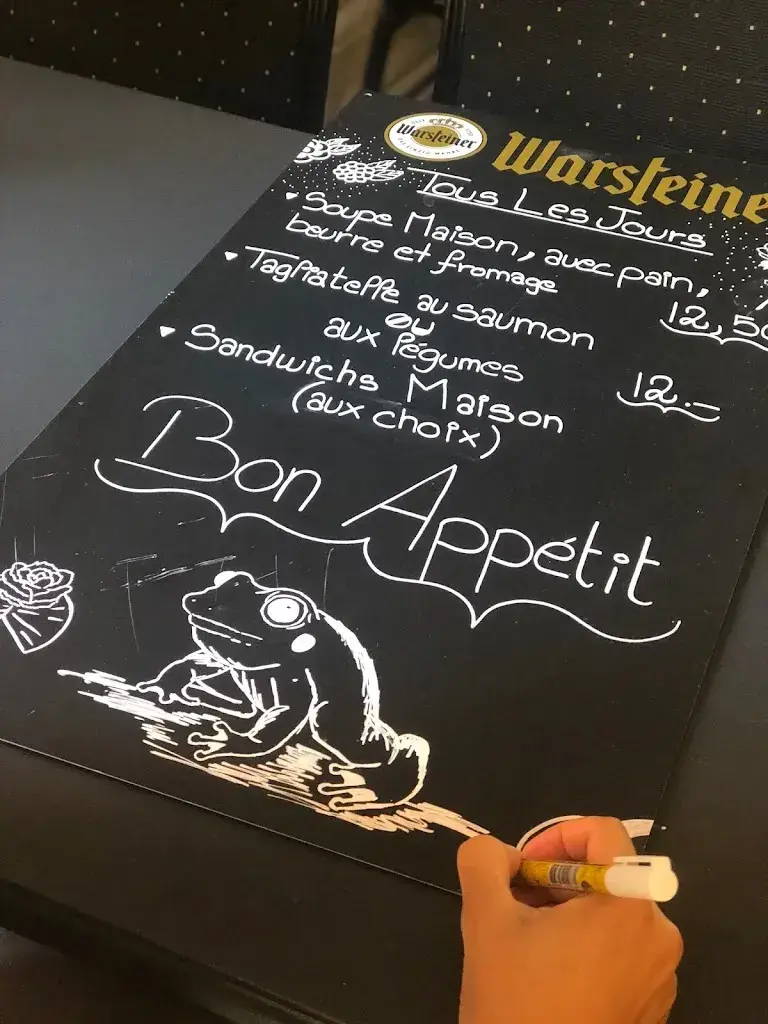 Warsteiner
Warsteine
Tous Les Jours
Soupe Maison, avec pain,
beurre et fromage
12,50
Tagliatelle au saumon
ou
aux légumes
12.-
Sandwichs Maison
(aux choix)
Bon Appétit